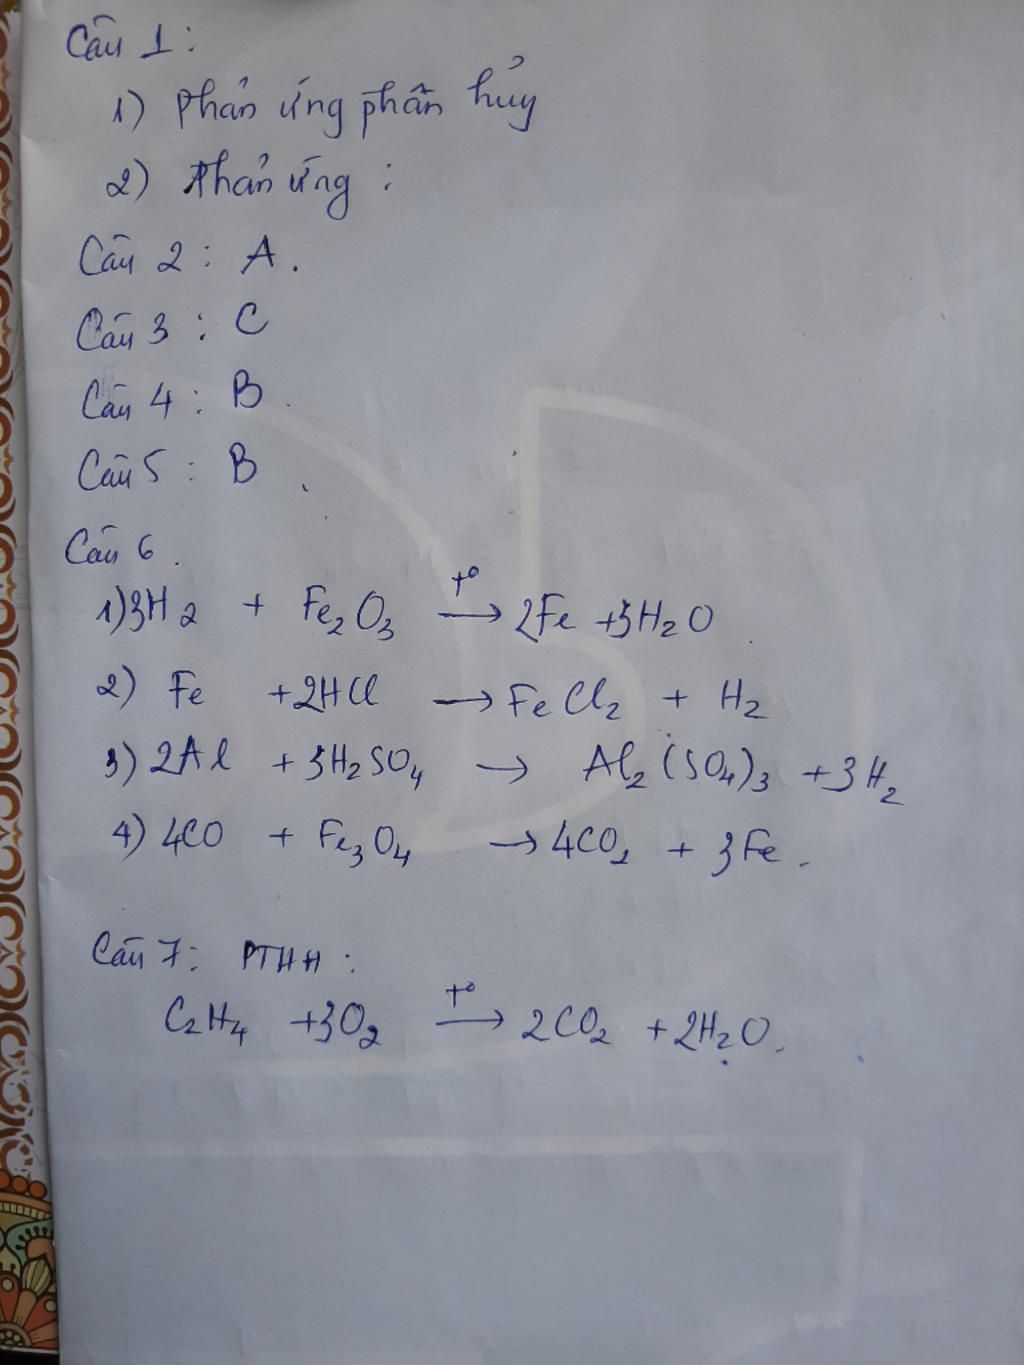 Câu 1:
1) Phản ứng phân hủy
2) Phản ứng :
Câu 2 : A.
Câu 3 : C
Câu 4 : B.
Câu 5 : B
Câu 6.
1) 3H₂ + Fe₂O₃ —t°→ 2Fe + 3H₂O
2) Fe + 2HCl → FeCl₂ + H₂
3) 2Al + 3H₂SO₄ → Al₂(SO₄)₃ + 3H₂
4) 4CO + Fe₃O₄ → 4CO₂ + 3Fe.
Câu 7: PTHH :
C₂H₄ + 3O₂ —t°→ 2CO₂ + 2H₂O.